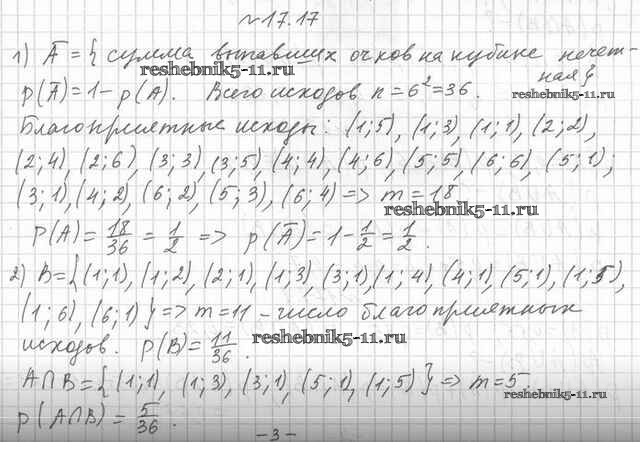 №17.17
1) A̅ = { сумма выпавших очков на кубике нечет-
ная }
reshebnik5-11.ru
reshebnik5-11.ru
p(A̅) = 1 - p(A). Всего исходов n = 6² = 36.
Благоприятные исходы: (1;5), (1;3), (1;1), (2;2),
(2;4), (2;6), (3;3), (3;5), (4;4), (4;6), (5;5), (6;6), (5;1);
(3;1), (4;2), (6;2), (5;3), (6;4) => m = 18
reshebnik5-11.ru
P(A) = 18/36 = 1/2 => p(A̅) = 1 - 1/2 = 1/2.
2) B = { (1;1), (1;2), (2;1), (1;3), (3;1), (1;4), (4;1), (5;1), (1;5),
(1;6), (6;1) } => m = 11 - число благоприятных
исходов. P(B) = 11/36.
reshebnik5-11.ru
A∩B = { (1;1), (1;3), (3;1), (5;1), (1;5) } => m = 5.
reshebnik5-11.ru
p(A∩B) = 5/36.
-3-